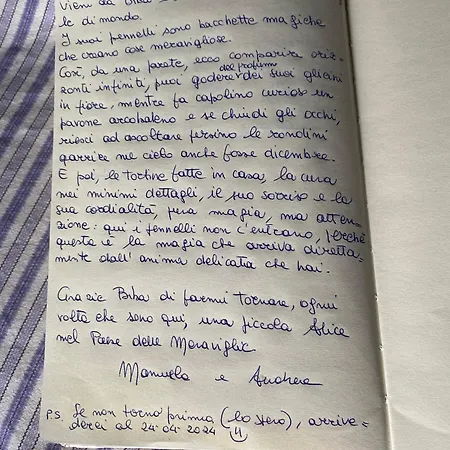 Vieni da
le di mondo.
I suoi pennelli sono bacchette magiche
che creano cose meravigliose.
Così, da una parete, ecco comparire oriz-
zonti infiniti, puoi godere del profumo dei suoi glicini
in fiore, mentre fa capolino curioso un
pavone arcobaleno e se chiudi gli occhi,
riesci ad ascoltare persino le rondini
garrire nel cielo anche fosse dicembre.
E poi, le tortine fatte in casa, la cura
nei minimi dettagli, il suo sorriso e la
sua cordialità, pura magia, ma atten-
zione: qui i pennelli non c'entrano, perché
questa è la magia che arriva diretta-
mente dall'anima delicata che hai.
Grazie Biba di farmi tornare, ogni
volta che sono qui, una piccola Alice
nel Paese delle Meraviglie.
Manuela e Andrea
P.S. Se non torno prima (lo spero), arrive=
derci al 24-04-2024